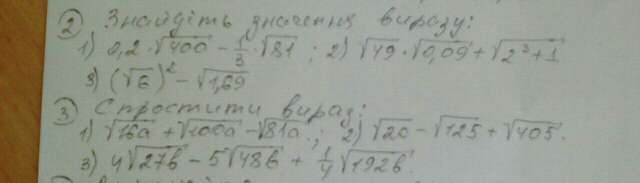 ② Знайдіть значення виразу:
1) 0,2·√400 - 1/3·√81 ; 2) √49·√0,09 + √2³+1
3) (√6)² - √1,69
③ Спростити вираз:
1) √16a + √100a - √81a ; 2) √20 - √125 + √405.
3) 4√27b - 5√48b + 1/4√192b.